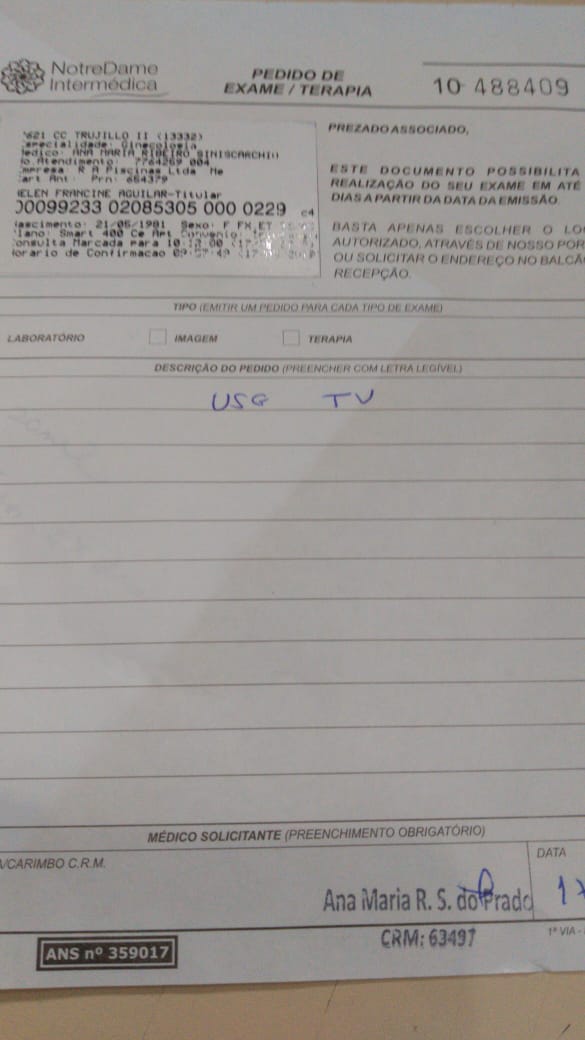 NotreDame
Intermédica
PEDIDO DE
EXAME / TERAPIA
10 488409
7621 CC TRUJILLO II (13332)
specialidade: Ginecologia
edico: ANA MARIA RIBEIRO SINISCARCHIO
o.Atendimento: 7764269 004
mpresa: R A Piscinas Ltda Me
art Ant: Prn: 654379
HELEN FRANCINE AGUILAR-Titular
00099233 02085305 000 0229 c4
ascimento: 21/05/1981 Sexo: F FX.ET
lano: Smart 400 Ce Apt Convenio:
onsulta Marcada para 10:12:00
orario de Confirmacao 09:57:49
PREZADO ASSOCIADO,
ESTE DOCUMENTO POSSIBILITA
REALIZAÇÃO DO SEU EXAME EM ATÉ
DIAS A PARTIR DA DATA DA EMISSÃO.
BASTA APENAS ESCOLHER O
AUTORIZADO, ATRAVÉS DE NOSSO
OU SOLICITAR O ENDEREÇO NO
RECEPÇÃO.
TIPO (EMITIR UM PEDIDO PARA CADA TIPO DE EXAME)
LABORATÓRIO IMAGEM TERAPIA
DESCRIÇÃO DO PEDIDO (PREENCHER COM LETRA LEGÍVEL)
USG TV
MÉDICO SOLICITANTE (PREENCHIMENTO OBRIGATÓRIO)
/CARIMBO C.R.M.
DATA
Ana Maria R. S. do Prado
17
CRM: 63497
1ª VIA -
ANS nº 359017